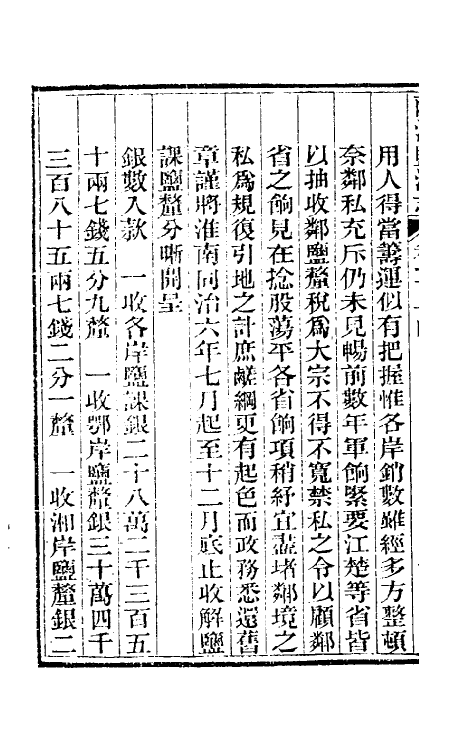 用人得當籌運似有把握惟各岸銷數雖經多方整頓
奈鄰私充斥仍未見暢前數年軍餉緊要江楚等省皆
以抽收鄰鹽釐稅爲大宗不得不寬禁私之令以顧鄰
省之餉見在捻股蕩平各省餉項稍紓宜盡堵鄰境之
私爲規復引地之計庶鹺綱更有起色而政務悉還舊
章謹將淮南同治六年七月起至十二月底止收解鹽
課鹽釐分晰開呈
銀數入款　一收各岸鹽課銀二十八萬二千三百五
十兩七錢五分九釐　一收鄂岸鹽釐銀三十萬四千
三百八十五兩七錢二分一釐　一收湘岸鹽釐銀二